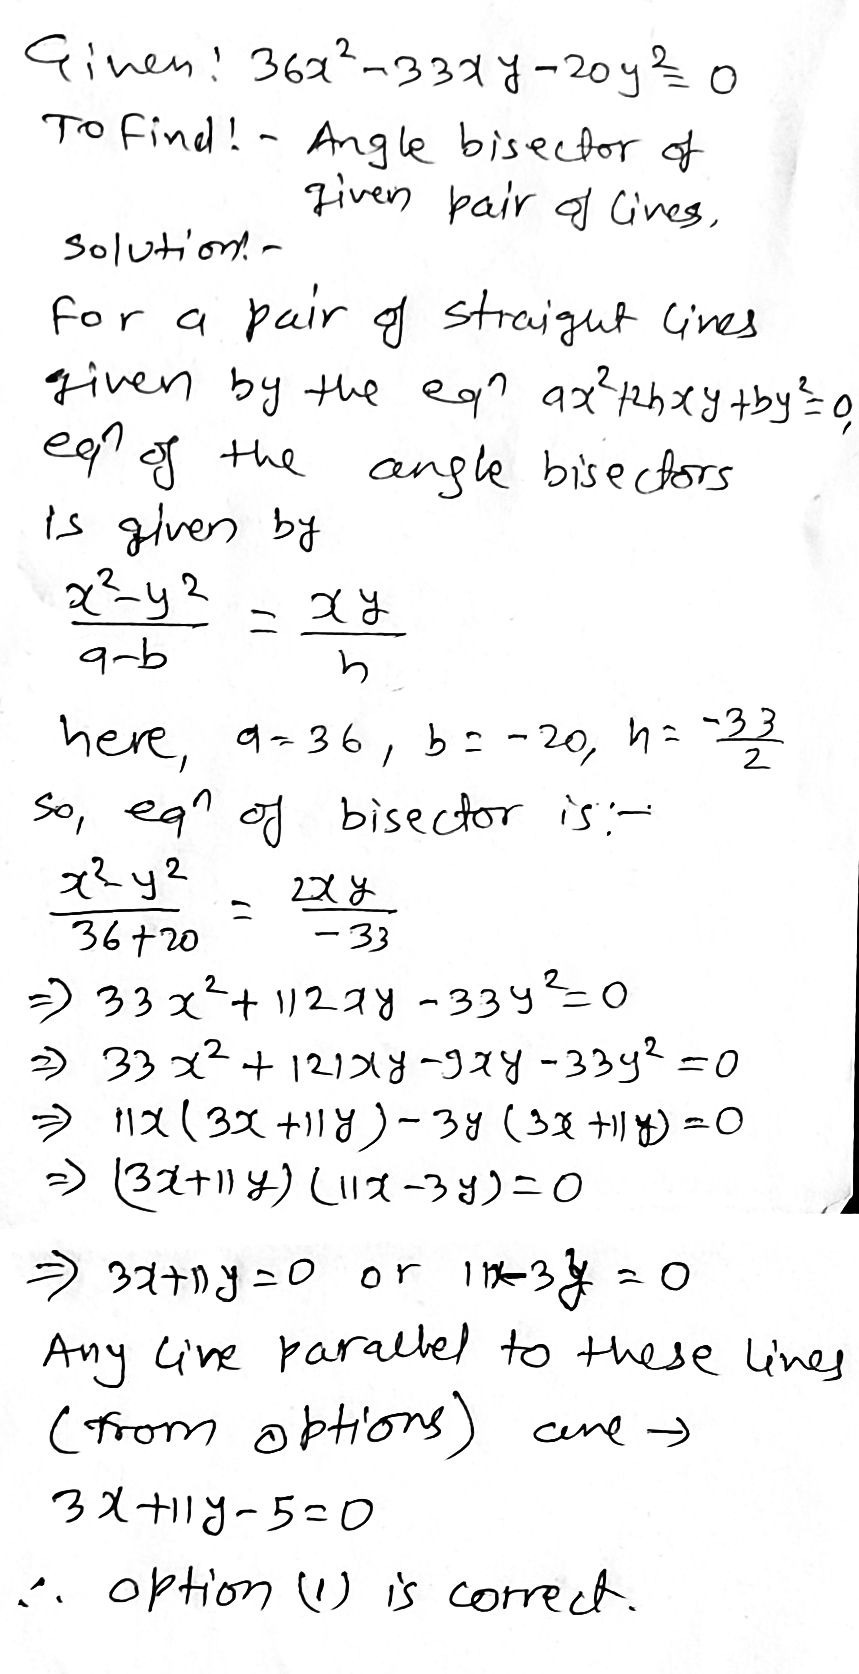 Given: 36x²-33xy-20y²=0
To find:- Angle bisector of
given pair of lines.
Solution:-
For a pair of straight lines
given by the eqⁿ ax²+2hxy+by²=0,
eqⁿ of the angle bisectors
is given by
(x²-y²)/(a-b) = xy/h
here, a=36, b=-20, h=-33/2
So, eqⁿ of bisector is:-
(x²-y²)/(36+20) = 2xy/-33
⇒ 33x²+112xy-33y²=0
⇒ 33x²+121xy-9xy-33y²=0
⇒ 11x(3x+11y)-3y(3x+11y)=0
⇒ (3x+11y)(11x-3y)=0
⇒ 3x+11y=0 or 11x-3y=0
Any line parallel to these lines
(from options) are →
3x+11y-5=0
∴ option (1) is correct.